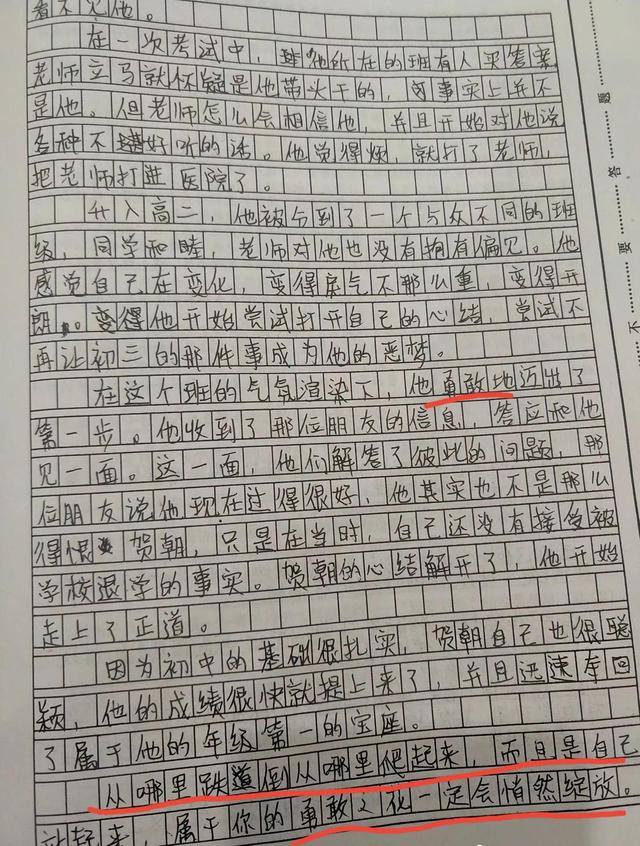 看不见他。
在一次考试中，他所在的班有人买答案
老师立马就怀疑是他带头干的，事实上并不
是他。但老师怎么会相信他，并且开始对他说
各种不好听的话。他觉得烦，就打了老师，
把老师打进医院了。
升入高二，他被分到了一个与众不同的班
级，同学和睦，老师对他也没有抱有偏见。他
感觉自己在变化，变得戾气不那么重，变得开
朗。变得他开始尝试打开自己的心结，尝试不
再让初三的那件事成为他的恶梦。
在这个班的气氛渲染下，他勇敢地迈出了
第一步。他收到了那位朋友的信息，答应和他
见一面。这一面，他们解答了彼此的问题，那
位朋友说他现在过得很好，他其实也不是那么
得恨贺朝，只是在当时，自己还没有接受被
学校退学的事实。贺朝的心结解开了，他开始
走上了正道。
因为初中的基础很扎实，贺朝自己也很聪
颖，他的成绩很快就提上来了，并且迅速夺回
了属于他的年级第一的宝座。
从哪里跌倒从哪里爬起来，而且是自己
站起来，属于你的勇敢之花一定会悄然绽放。
题
答
要
不